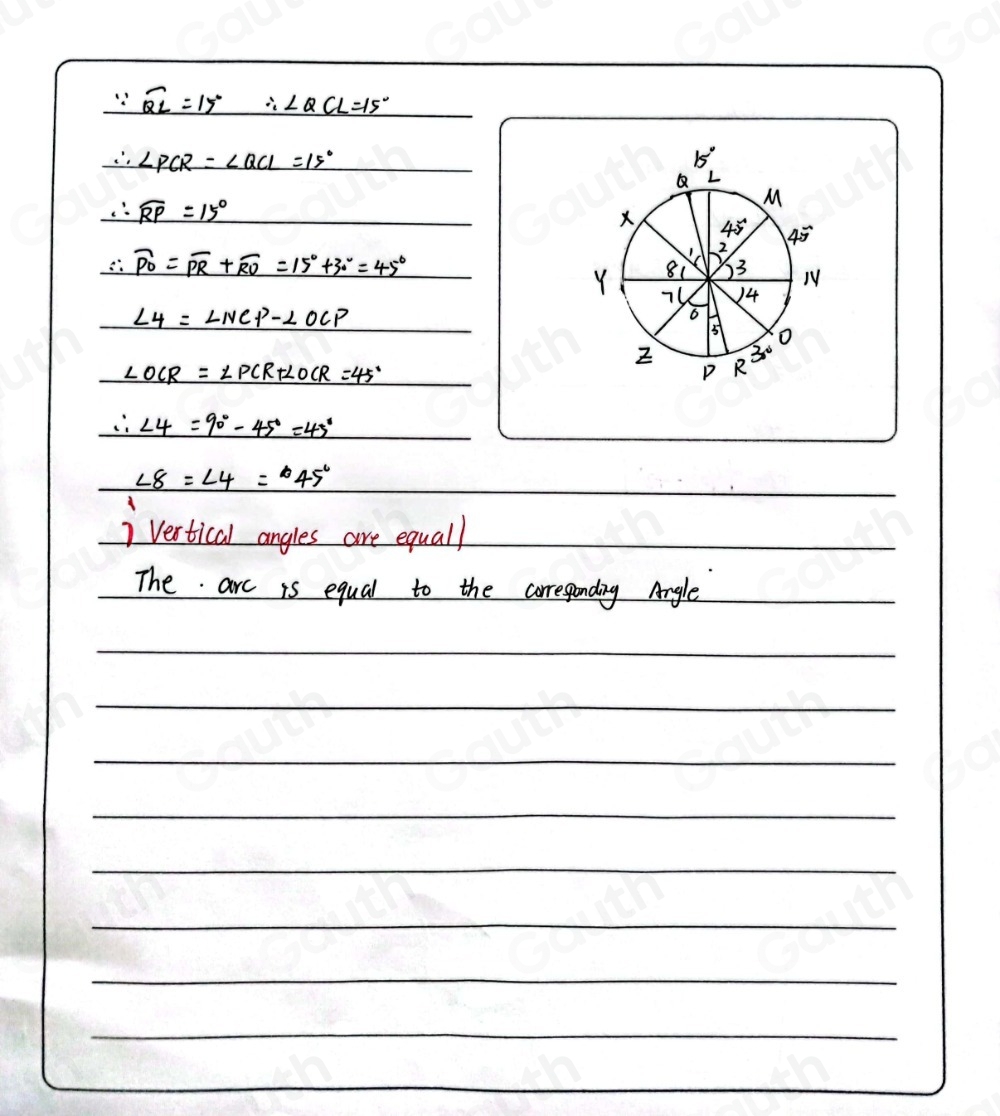 ∵ QL = 15° ∴ ∠QCL=15°
∴ ∠PCR = ∠QCL = 15°
∴ RP = 15°
∴ PO = PR + RO = 15° + 30° = 45°
∠4 = ∠NCP - ∠OCP
∠OCR = ∠PCR+∠OCR = 45°
∴ ∠4 = 90° - 45° = 45°
∠8 = ∠4 = 45°
Vertical angles are equal)
The . arc is equal to the corresponding Angle
15°
Q L
M
X
45°
45°
1 2
Y 8 3 N
7 4
6
5
Z O
30°
P R
Gauth